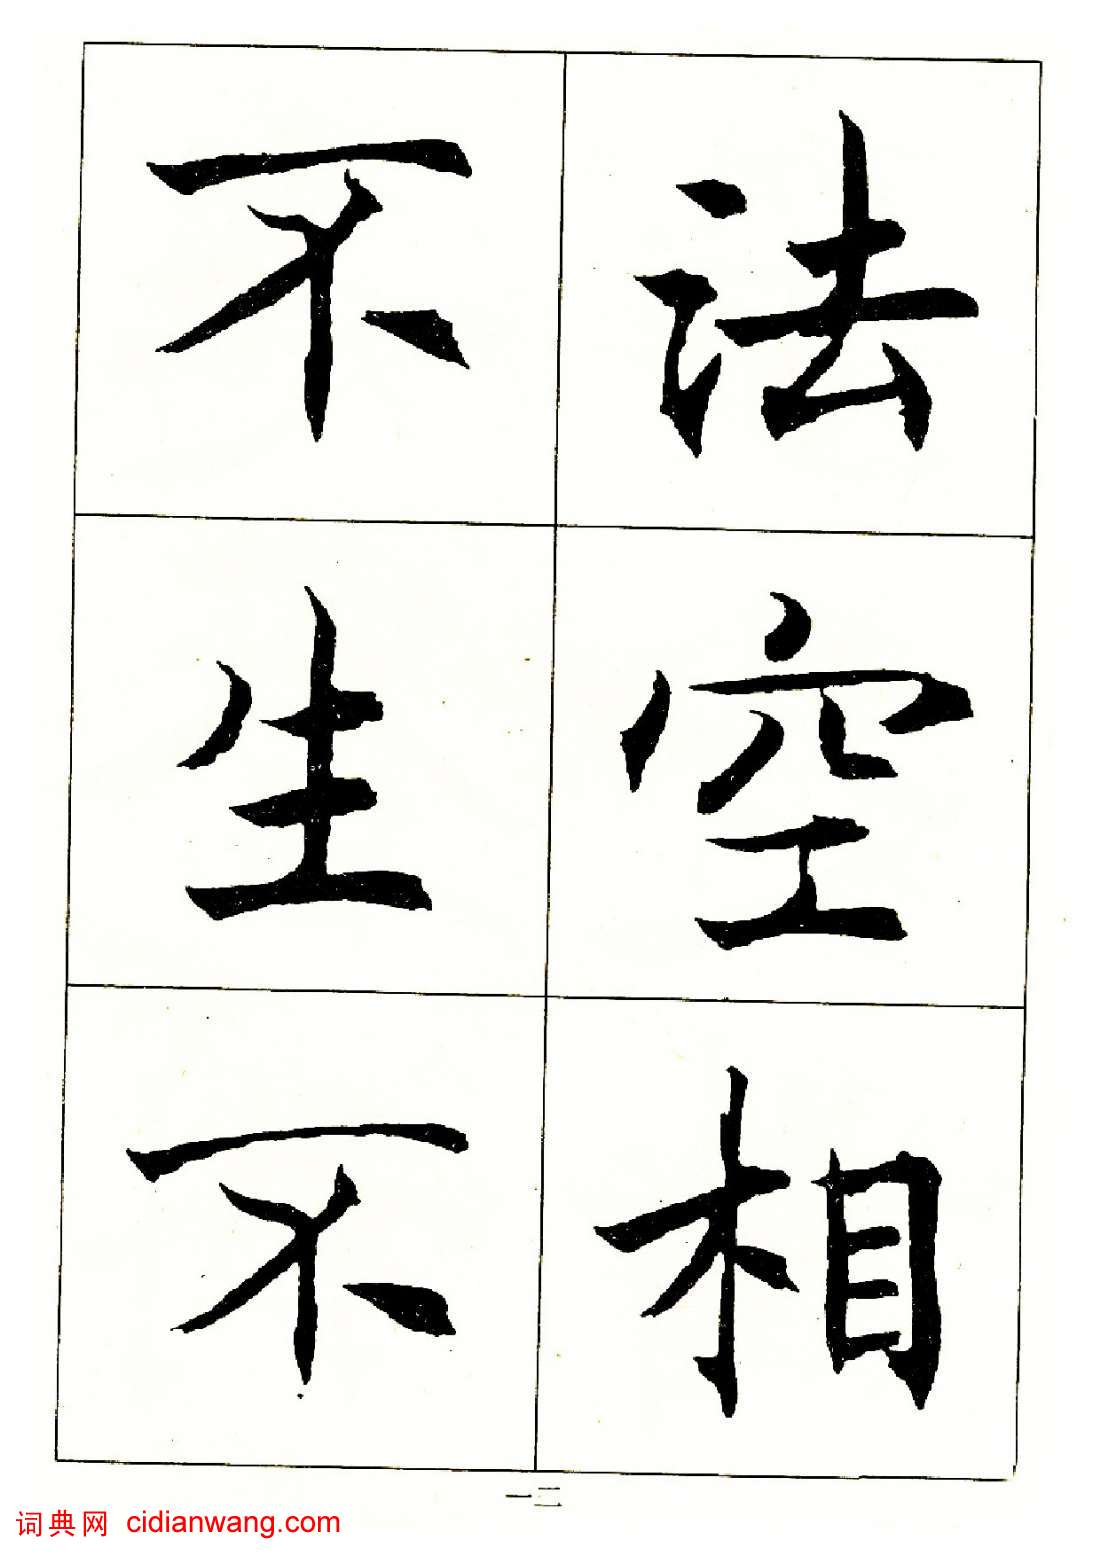 法空相
不生不
一二
词典网 cidianwang.com